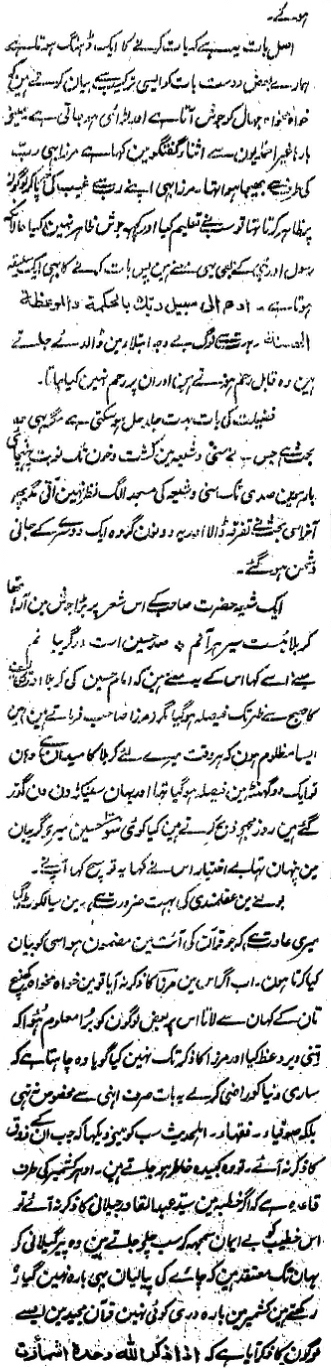 ہوئے۔
اصل بات یہ ہے کہ بات کرنے کا ایک ڈہنگ ہوتا ہے
ہمارے بعض دوست بات کو ایسی ترکیب سے بیان کرتے ہین کہ
خواہ مخواہ جہال کو جوش آتا ہے اور لڑائی ہو جاتی ہے مینے
بارہا غیر احمدیون سے اثناء گفتگو مین کہا ہے مرزا بہی رب
کی طرف سے بہیجا ہوا تہا۔ مرزا بہی اپنے رب سے غیب کی پا کر لوگون
پر ظاہر کرتا تہا تو سب نے تعلیم کیا اور کچہ جوش ظاہر نہین کیا حالانکہ
رسول اور نبی کے بہی یہی معنے ہین پس بات کہنے کا بہی ایک سلیقہ
ہوتا ہے۔ ادع الی سبیل ربک بالحکمۃ والموعظۃ
الحسنۃ بہت سے لوگ بے وجہ ابتلاء مین ڈالدئے جاتے
ہین وہ قابل رحم ہوتے ہین اور ان پر رحم نہین کیا جاتا۔
فضیلت کی بات بہت جلد حل ہو سکتی ہے مگر یہی وہ
بحث ہے جس نے سنی و شیعہ مین کشت و خون تک نوبت پہنچائی
بارہوین صدی تک سنی و شیعہ کی مسجد الگ نظر نہین آتی مگر پہر
آخر اسی بحث نے تفرقہ ڈالا اور یہ دونون گروہ ایک دوسرے کے جانی
دشمن ہو گئے۔
ایک شیعہ حضرت صاحب کے اس شعر پر بڑا جوش مین آرہا تھا
کربلائیست سیر ہر آنم ٭ صد حسین است در گریبانم
مینے اسے کہا اس کے یہ معنے ہین کہ امام حسین کی کربلا اور
کا صبح سے ظہر تک فیصلہ ہو گیا مگر مرزا صاحب فرماتے ہین مین
ایسا مظلوم ہون کہ ہر وقت میرے لئے کربلا کا میدان ہے وہان
تو ایک دو گھنٹے مین فیصلہ ہو گیا تہا اور یہان سینکڑون دن گذر
گئے ہین روز مجہے ذبح کرتے ہین گویا کوئی سو حسین میرے گریبان
مین پنہان تہا بے اختیار اس نے کہا یہ تو سچ کہا آپنے۔
بولنے مین عقلمندی کی بہت ضرورت ہے، مین سیالکوٹ گیا
میری عادت ہے کہ جو قرآن کی آئت مین مضمون ہو اسی کو بیان
کیا کرتا ہون۔ اب اگر اس مین مرزا کا ذکر نہ آیا تو مین خواہ مخواہ کھینچ
تان کے کہان سے لاتا اس پر بعض لوگون کو برا معلوم ہوا کہ
اتنی دیر وعظ کیا اور مرزا کا ذکر تک نہین کیا گویا وہ چاہتا ہے کہ
ساری دنیا کو راضی کر لے یہ بات صرف انہی سے مخصوص نہ تہی
بلکہ صوفیاء۔ فقہاء۔ اہلحدیث سب کو مینے دیکہا کہ جب ان کے ذوق
کا ذکر نہ آئے۔ تو وہ کبیدہ خاطر ہو جاتے ہین۔ ادہر کشمیر کی طرف
قاعدہ ہے کہ اگر خطبہ مین سید عبد القادر جیلانی کا ذکر نہ آئے تو
اس خطیب کو بے ایمان سمجھ کر سب چلے جاتے ہین وہ پیر گیلانی کے
یہان تک معتقد ہین کہ چائے کی پیالیان بہی بارہ نہین گیارہ
رکھتے ہین کشمیر مین بارہ دری کوئی نہین قرآن مجید مین ایسے
لوگون کا ذکر آیا ہے کہ اذا ذکر اللہ وحدہ اشمأزت